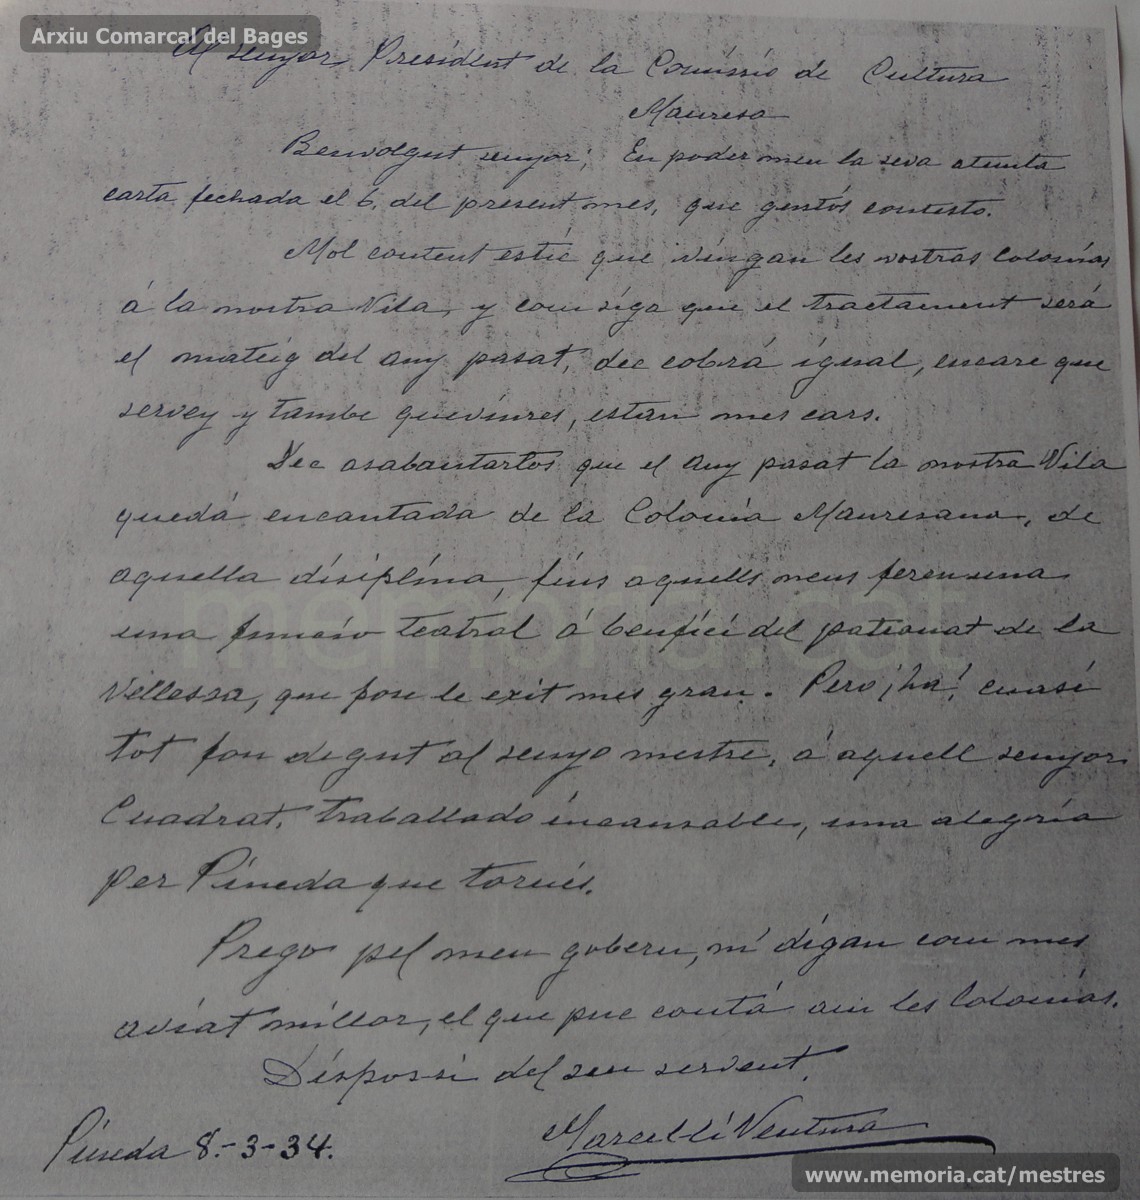 Arxiu Comarcal del Bages
Al senyor President de la Comissió de Cultura
Manresa
Benvolgut senyor; En poder meu la seva atenta
carta fechada el 6. del present mes, que gustós contesto.
Mol content estic que vingan les vostras Colonias
á la nostra Vila, y com siga que el tractament será
el mateig del any pasat, dec cobrá igual, encare que
servey y tambe queviures, estan mes cars.
Dec asabantarlos que el any pasat la nostra Vila
quedá encantada de la Colonia Manresana, de
aquella disiplina, fins aquells nens feren una
una funcio teatral á benfici del patronat de la
Vellessa, que fou le exit mes gran. Pero ¡ha! cuasi
tot fou degut al senyo mestre, á aquell senyor
Cuadrat, traballado incansable, una alegria
per Pineda que tornés.
Prego pel meu gobern, m' digan com mes
aviat millor, el que puc contá am les Colonias.
Dispossi del seu servent,
Marcel-lí Ventura
Pineda 8.-3-34.
memoria.cat
www.memoria.cat/mestres